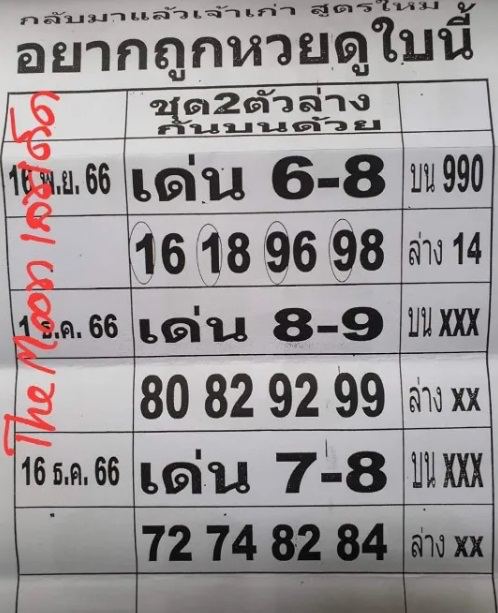 กลับมาแล้วเจ้าเก่า สูตรใหม่
อยากถูกหวยดูใบนี้
ชุด2ตัวล่าง
กันบนด้วย
16 พ.ย. 66 เด่น 6-8 บน 990
16 18 96 98 ล่าง 14
1 ธ.ค. 66 เด่น 8-9 บน xxx
80 82 92 99 ล่าง xx
16 ธ.ค. 66 เด่น 7-8 บน xxx
72 74 82 84 ล่าง xx
The Moon